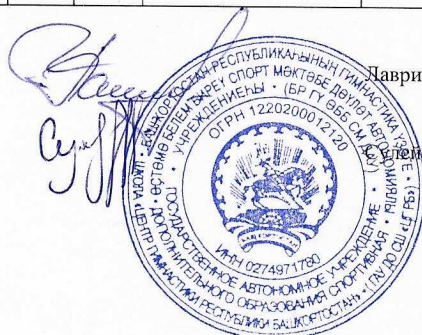 Лаври
Сулей
БАШКОРТОСТАН РЕСПУБЛИКАҺЫНЫҢ ГИМНАСТИКА ҮЗӘГЕ
ӨҪТӘМӘ БЕЛЕМ БИРЕҮ СПОРТ МӘКТӘБЕ ДӘҮЛӘТ АВТОНОМИЯЛЫ
УЧРЕЖДЕНИЕҺЫ • (БР ГҮ ӨББ СМ ДАУ)
ОГРН 1220200012120
ИНН 0274971780
ГОСУДАРСТВЕННОЕ АВТОНОМНОЕ УЧРЕЖДЕНИЕ
ДОПОЛНИТЕЛЬНОГО ОБРАЗОВАНИЯ СПОРТИВНАЯ
ШКОЛА «ЦЕНТР ГИМНАСТИКИ РЕСПУБЛИКИ БАШКОРТОСТАН» • (ГАУ ДО СШ «ЦГ РБ»)